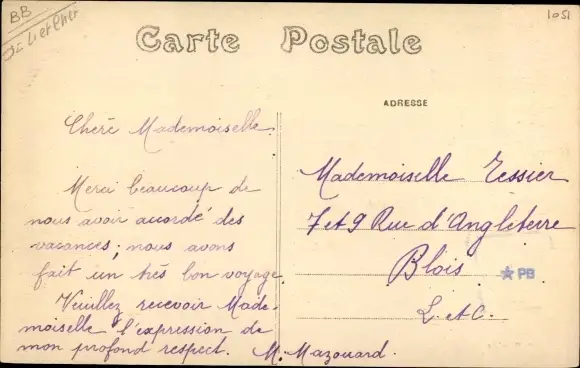 BB
1051
Carte Postale
ADRESSE
Cheré Mademoiselle.
Merci beaucoup de
nous avoir accordé des
vacances; nous avons
fait un très bon voyage
Veuillez recevoir Made-
moiselle l'expression de
mon profond respect. M. Mazouard.
Mademoiselle Tessier
7 et 9 Rue d'Angleterre
Blois
L. et C.
PB